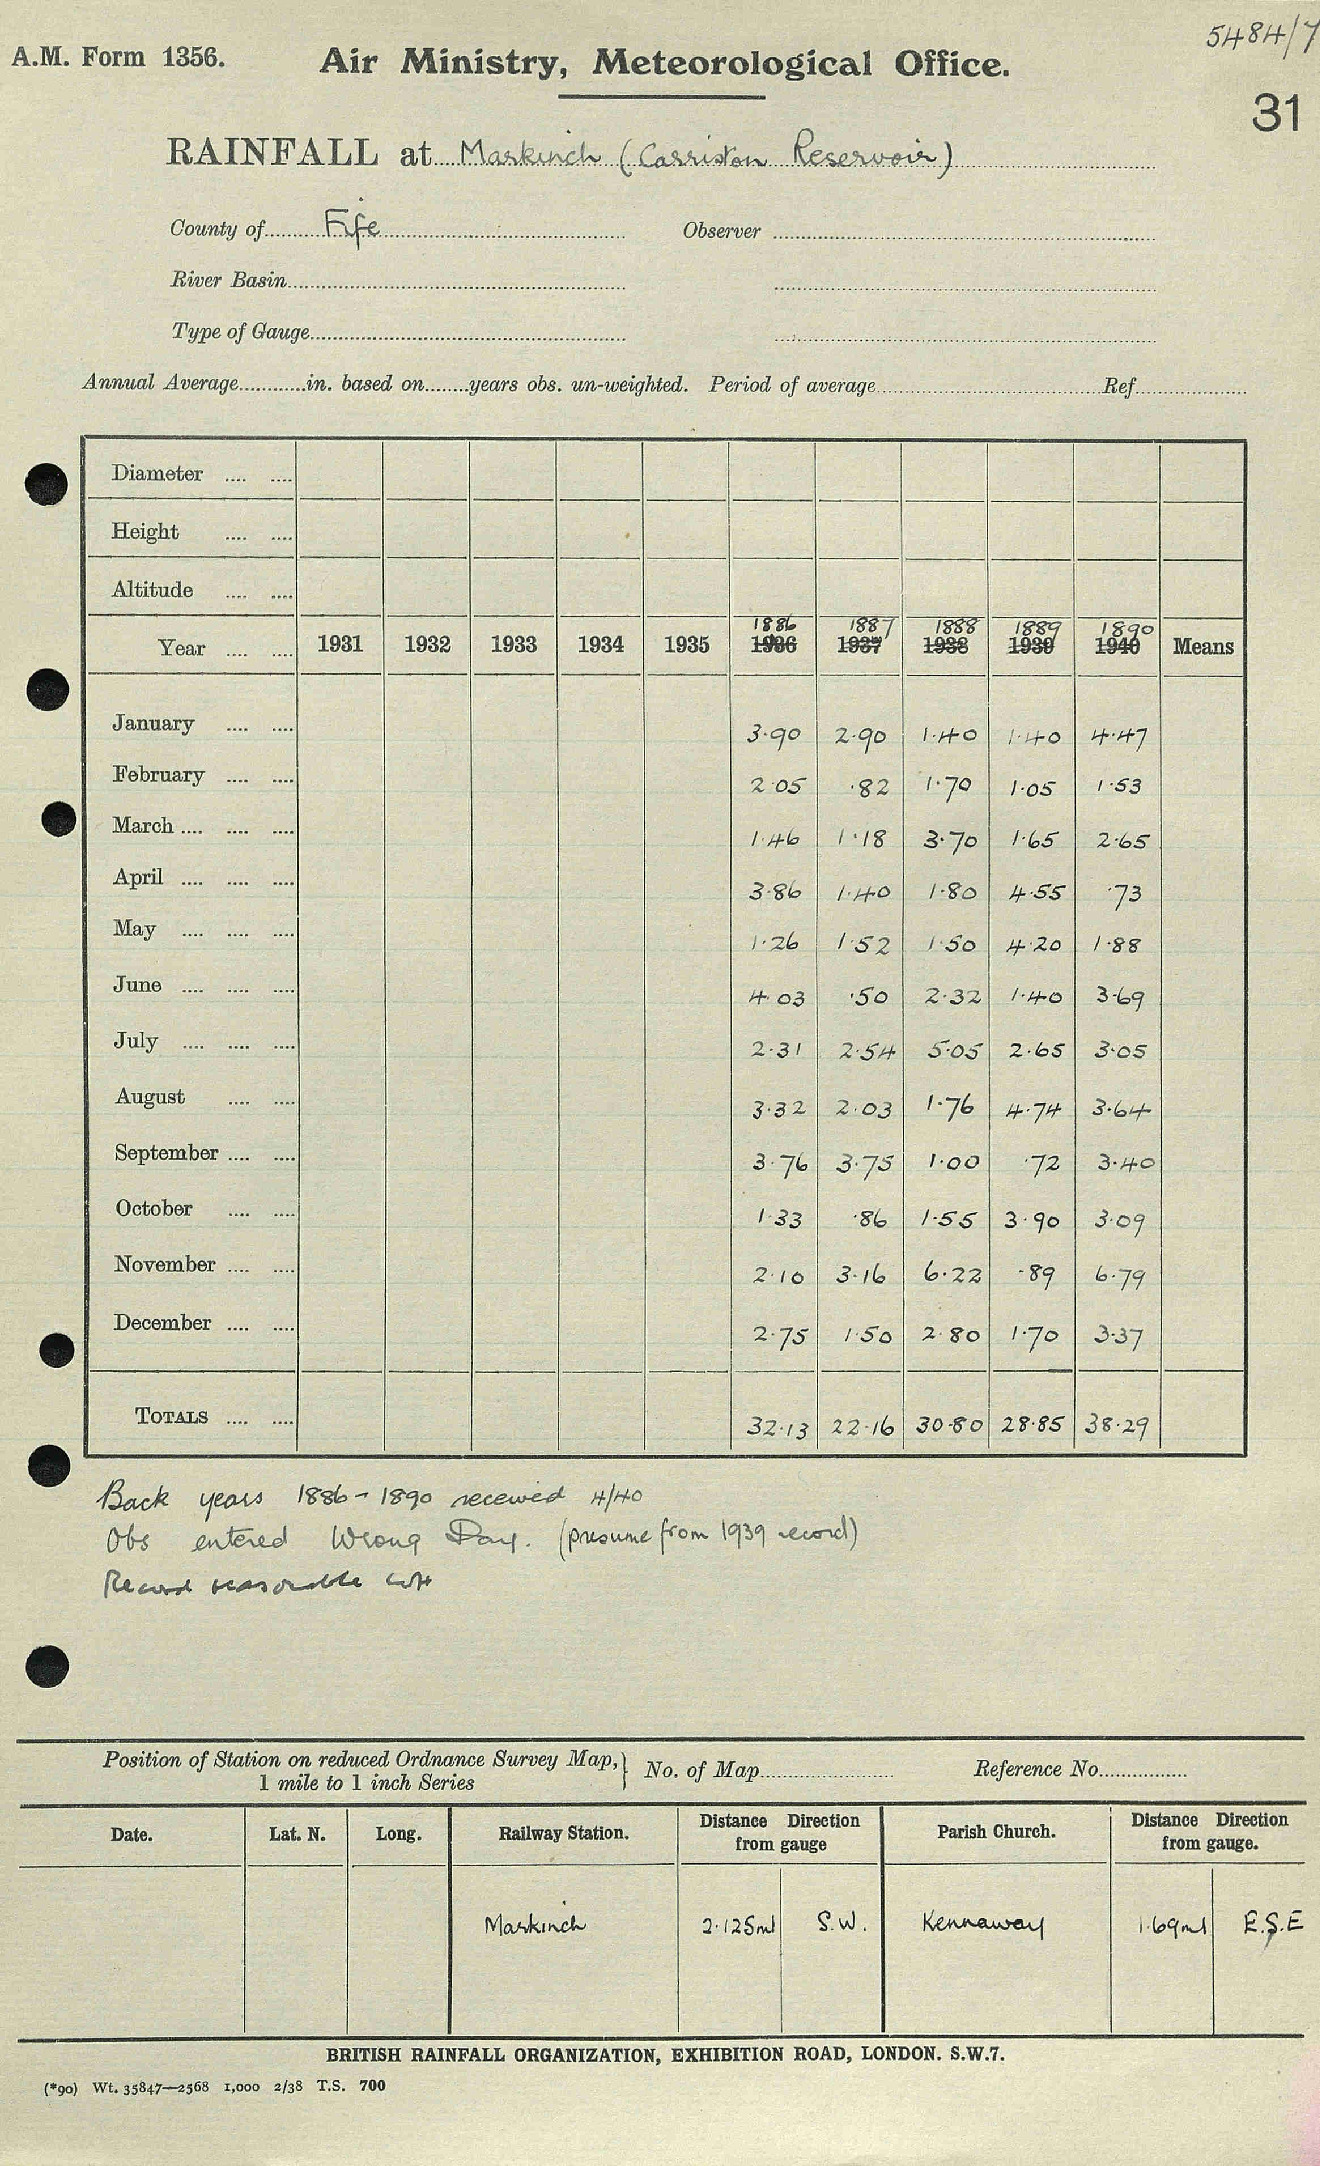 5484/7
A.M. Form 1356. Air Ministry, Meteorological Office.
31
RAINFALL at Markinch (Carriston Reservoir)
County of Fife Observer
River Basin
Type of Gauge
Annual Average in. based on years obs. un-weighted. Period of average Ref.
Diameter
Height
Altitude
1886 1887 1888 1889 1890
Year 1931 1932 1933 1934 1935 1936 1937 1938 1939 1940 Means
January 3.90 2.90 1.40 1.40 4.47
February 2.05 .82 1.70 1.05 1.53
March 1.46 1.18 3.70 1.65 2.65
April 3.86 1.40 1.80 4.55 .73
May 1.26 1.52 1.50 4.20 1.88
June 4.03 .50 2.32 1.40 3.69
July 2.31 2.54 5.05 2.65 3.05
August 3.32 2.03 1.76 4.74 3.64
September 3.76 3.75 1.00 .72 3.40
October 1.33 .86 1.55 3.90 3.09
November 2.10 3.16 6.22 .89 6.79
December 2.75 1.50 2.80 1.70 3.37
TOTALS 32.13 22.16 30.80 28.85 38.29
Back years 1886-1890 received 4/40
Obs entered Wrong Day. (presume from 1939 record)
Record reasonable
Position of Station on reduced Ordnance Survey Map, } No. of Map Reference No.
1 mile to 1 inch Series
Date. Lat. N. Long. Railway Station. Distance Direction from gauge Parish Church. Distance Direction from gauge.
Markinch 2.125ml S.W. Kennaway 1.69ml E.S.E
BRITISH RAINFALL ORGANIZATION, EXHIBITION ROAD, LONDON. S.W.7.
(*90) Wt. 35847—2568 1,000 2/38 T.S. 700